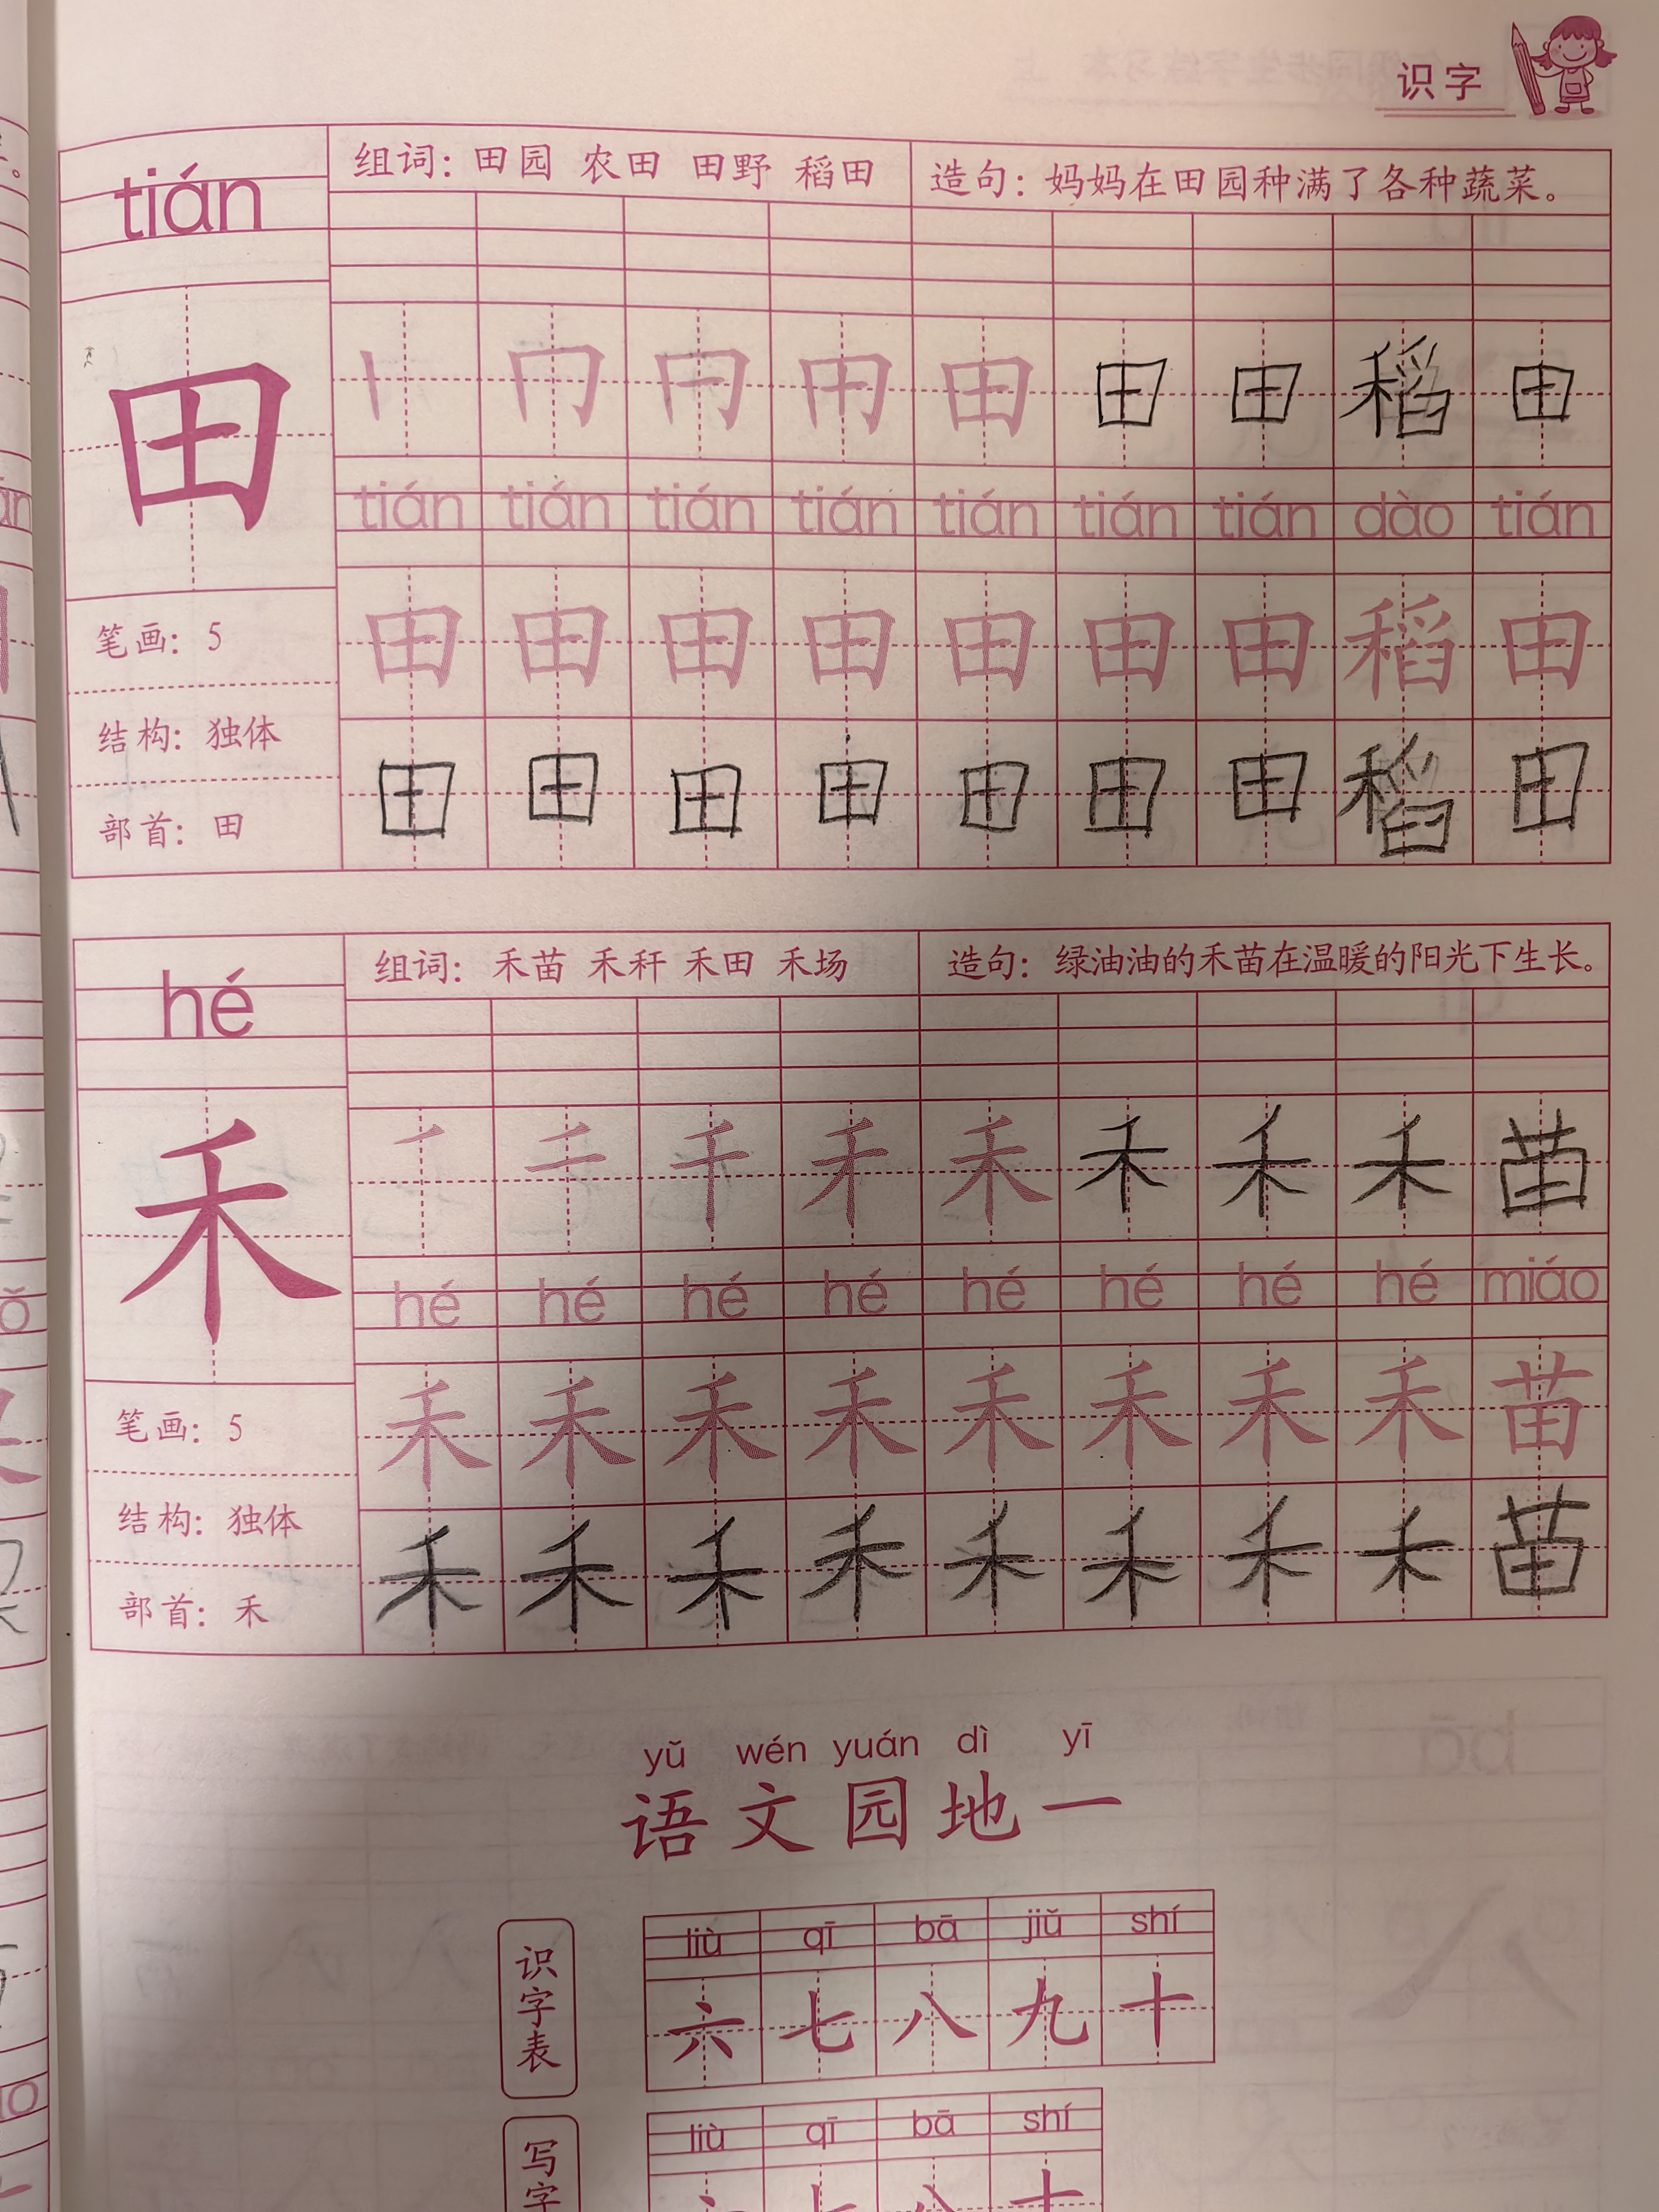 识字
tián
组词：田园 农田 田野 稻田
造句：妈妈在田园种满了各种蔬菜。
田
田 田 田 稻 田
tián tián tián tián tián tián tián dào tián
田 田 田 田 田 田 田 稻 田
田 田 田 田 田 田 田 稻 田
笔画：5
结构：独体
部首：田
hé
组词：禾苗 禾秆 禾田 禾场
造句：绿油油的禾苗在温暖的阳光下生长。
禾
二 千 禾 禾 禾 禾 苗
hé hé hé hé hé hé hé hé miáo
禾 禾 禾 禾 禾 禾 禾 禾 苗
禾 禾 禾 禾 禾 禾 禾 禾 苗
笔画：5
结构：独体
部首：禾
yǔ wén yuán dì yī
语文园地一
识字表
liù qī bā jiǔ shí
六 七 八 九 十
写字
liù qī bā shí